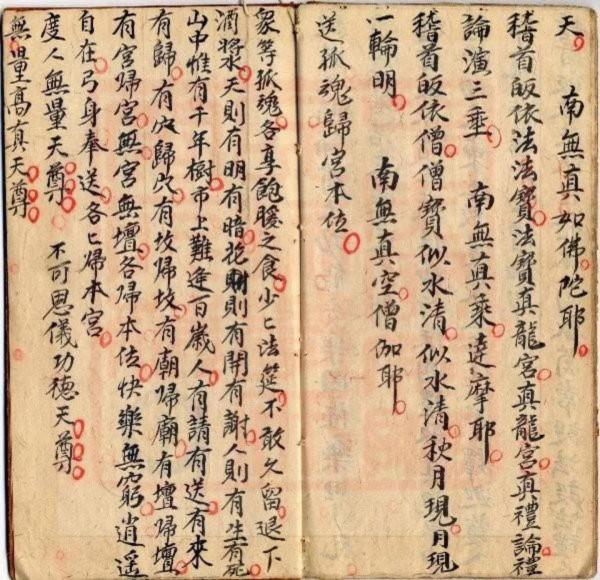 天　南無真如佛陀耶
稽首皈依法法寶法寶真龍宮真龍宮真禮論禮
論演三乘　南無真乘達摩耶
稽首皈依僧僧寶似水清似水清秋月現月現
一輪明　南無真空僧伽耶
送孤魂歸宮本位
衆等孤魂各享飽暖之食少匕法筵不敢久留退下
酒漿天則有明有暗花則有開有謝人則有生有死
山中惟有千年樹市上難逢百歲人有請有送有來
有歸有穴歸穴有坟歸坟有朝歸廟有壇歸壇
有宮歸宮無宮無壇各歸本位快樂無窮逍遥
自在弓身奉送各匕帰本宮
度人無量天尊　不可思儀功德天尊
無量高真天尊